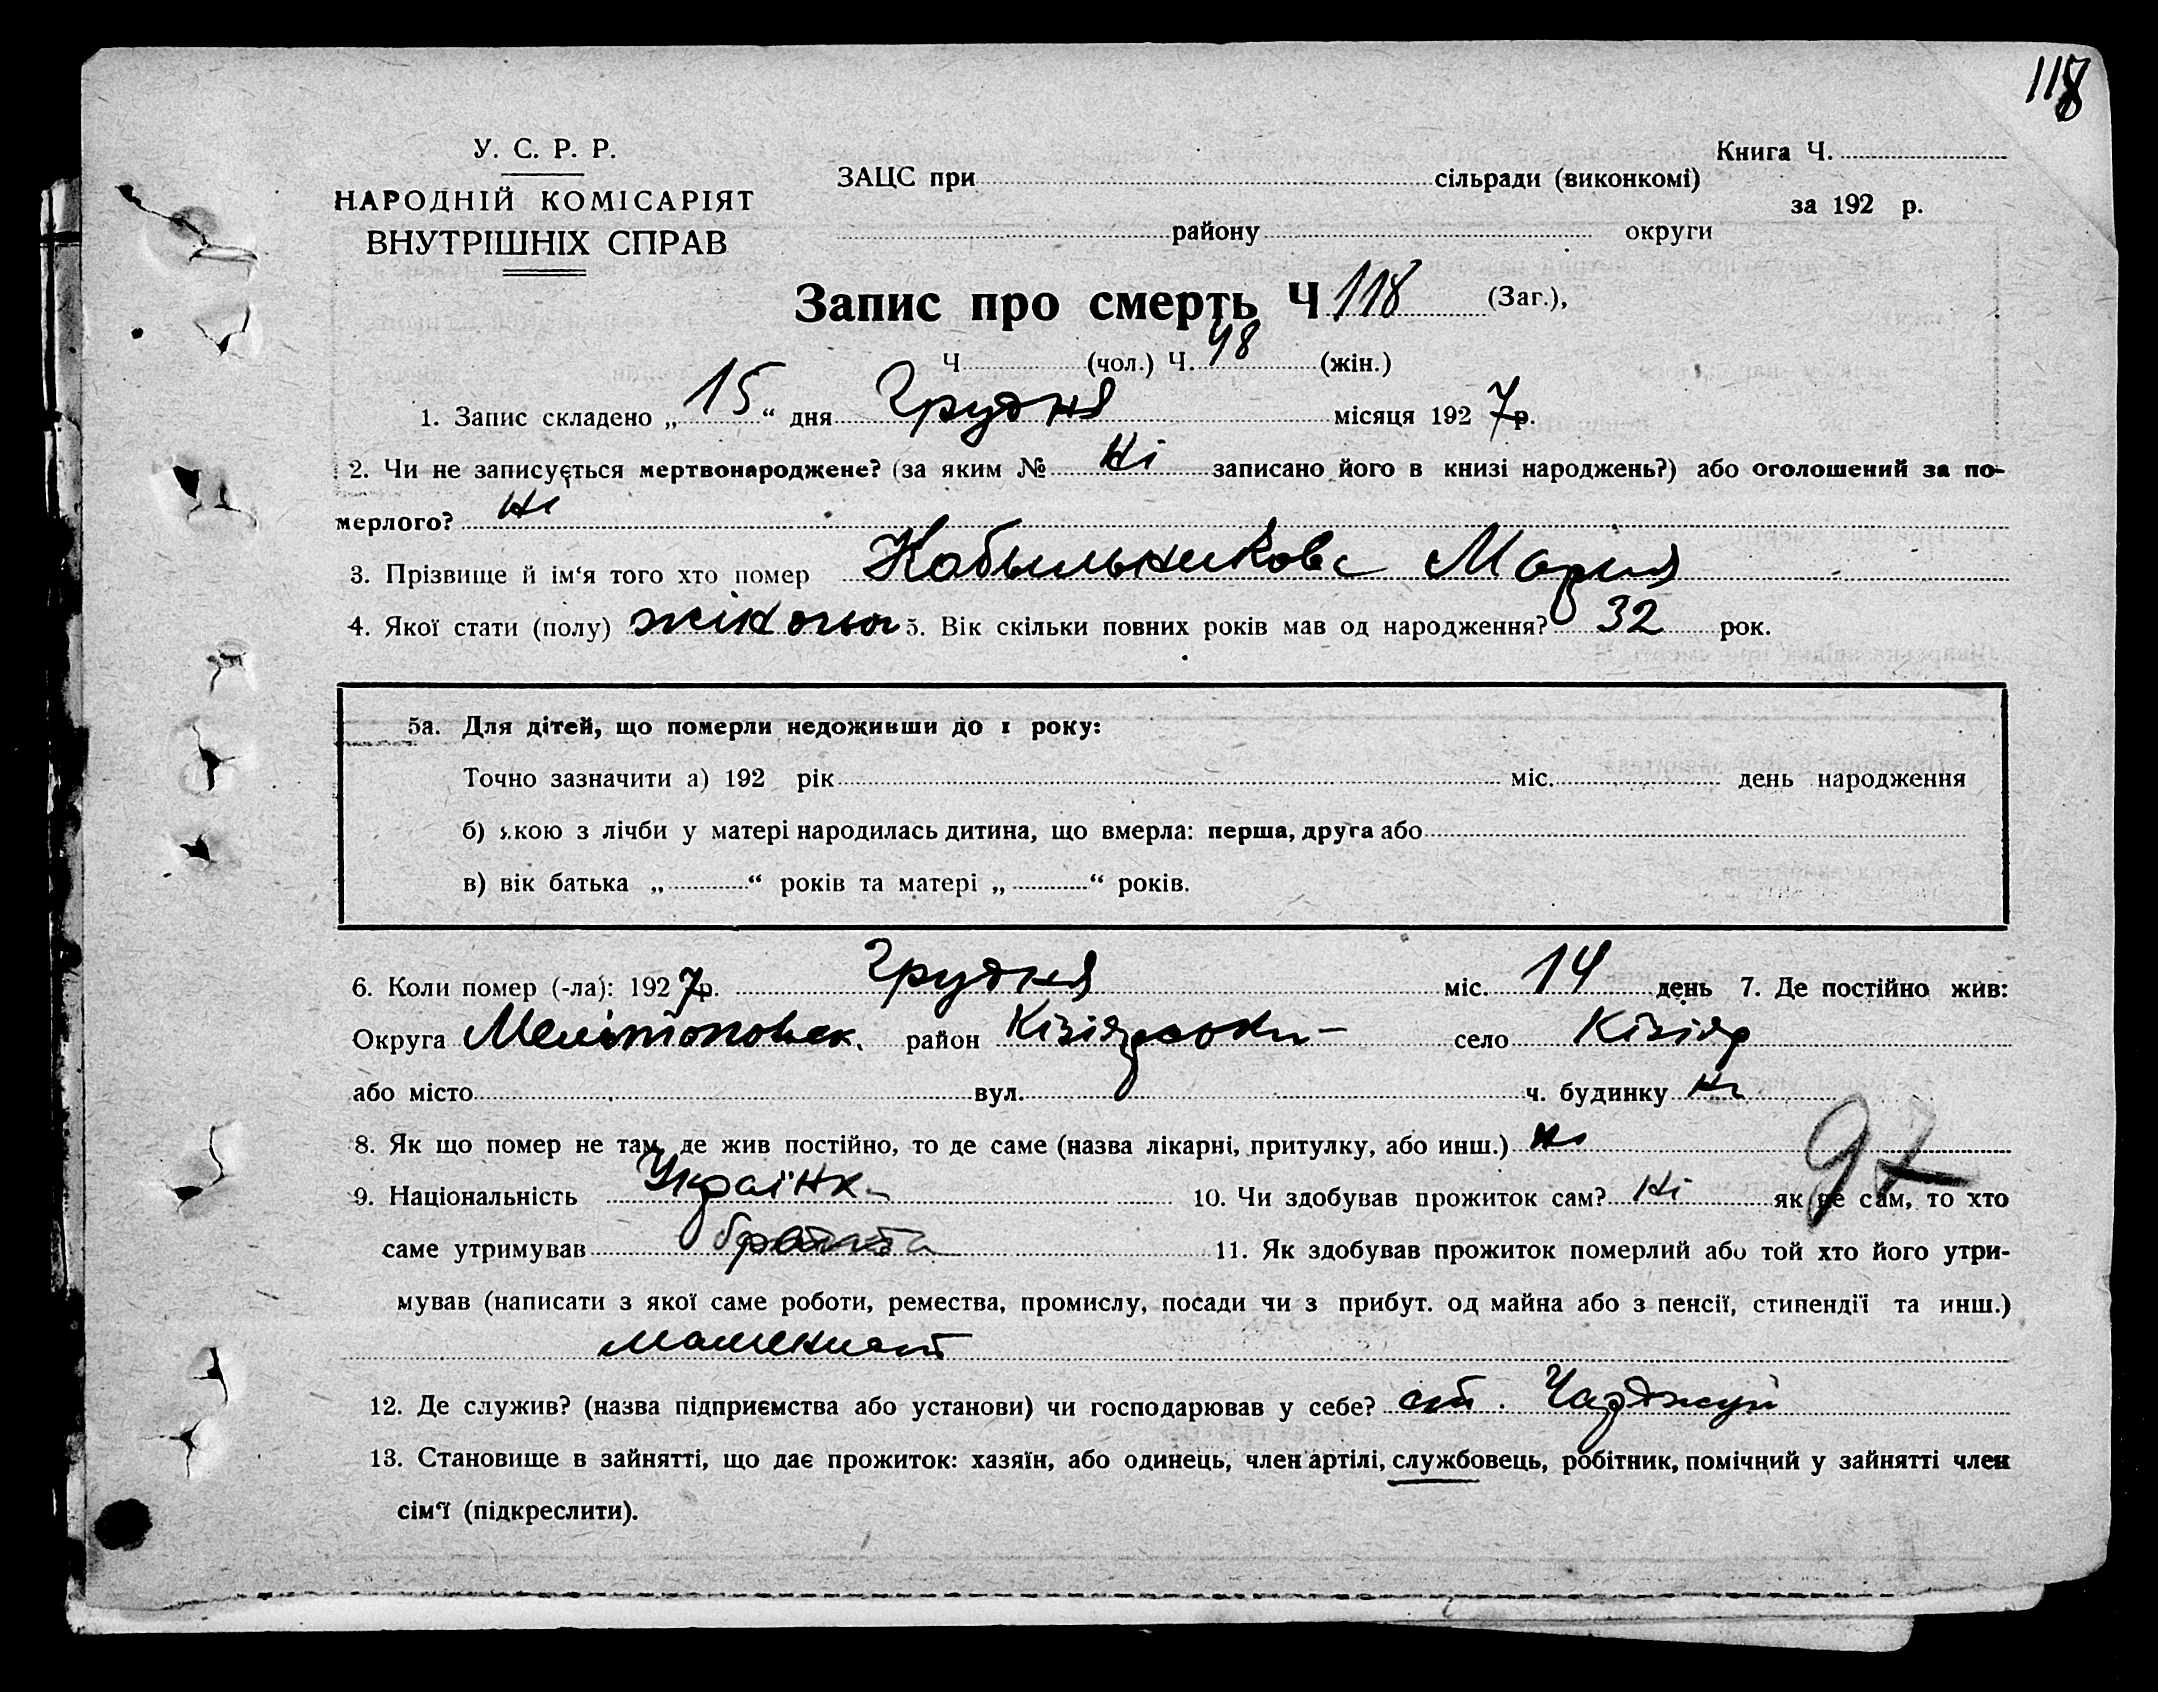 118
У. С. Р. Р.
НАРОДНІЙ КОМІСАРІЯТ
ВНУТРІШНІХ СПРАВ
ЗАЦС при сільради (виконкомі)
району округи
Книга Ч.
за 192 р.
Запис про смерть Ч 118 (Заг.),
Ч (чол.) Ч. 48 (жін.)
1. Запис складено „ 15 “ дня Грудня місяця 192 7 р.
2. Чи не записується мертвонароджене? (за яким № Ні записано його в книзі народжень?) або оголошений за по-
мерлого? Ні
3. Прізвище й ім‘я того хто помер Кобыльникова Мария
4. Якої стати (полу) жіночої 5. Вік скільки повних років мав од народження? 32 рок.
5а. Для дітей, що померли недоживши до 1 року:
Точно зазначити а) 192 рік міс. день народження
б) якою з лічби у матері народилась дитина, що вмерла: перша, друга або
в) вік батька „ “ років та матері „ “ років.
6. Коли помер (-ла): 192 7 р. Грудня міс. 14 день 7. Де постійно жив:
Округа Мелітопольск. район Кізіярський село Кізіяр
або місто вул. ч. будинку Ні
8. Як що помер не там, де жив постійно, то де саме (назва лікарні, притулку, або инш.) Ні
97
9. Національність Українк 10. Чи здобував прожиток сам? Ні як не сам, то хто
саме утримував 11. Як здобував прожиток померлий або той хто його утри-
мував (написати з якої саме роботи, ремества, промислу, посади чи з прибут. од майна або з пенсії, стипендії та инш.)
машиніст
12. Де служив? (назва підприємства або установи) чи господарював у себе? ст. Чарджуй
13. Становище в зайнятті, що дає прожиток: хазяїн, або одинець, член артілі, службовець, робітник, помічний у зайнятті член
сім‘ї (підкреслити).